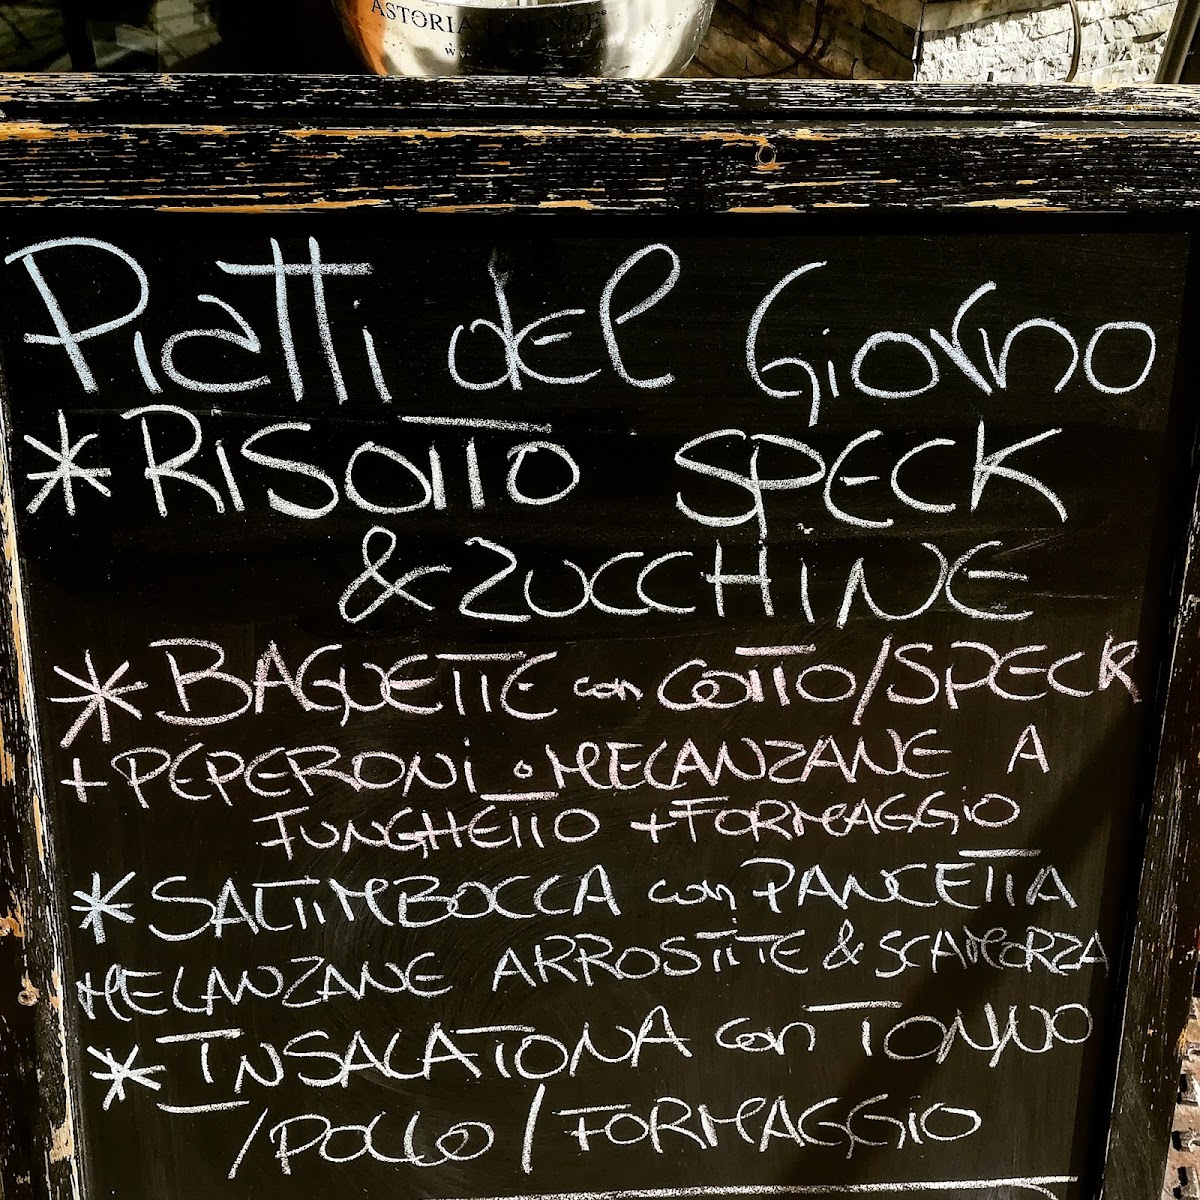 ASTORIA LOUNGE
Piatti del Giorno
* RiSOTTO SPECK
& ZUCCHiNE
* BAGUETTE con COTTO/SPECK
+ PEPERONi o MELANZANE A
FUNGHETTO + FORMAGGiO
* SALTiMBOCCA con PANCETTA
MELANZANE ARROSTiTE & SCAMORZA
* INSALATONA con TONNO
/POLLO/FORMAGGiO